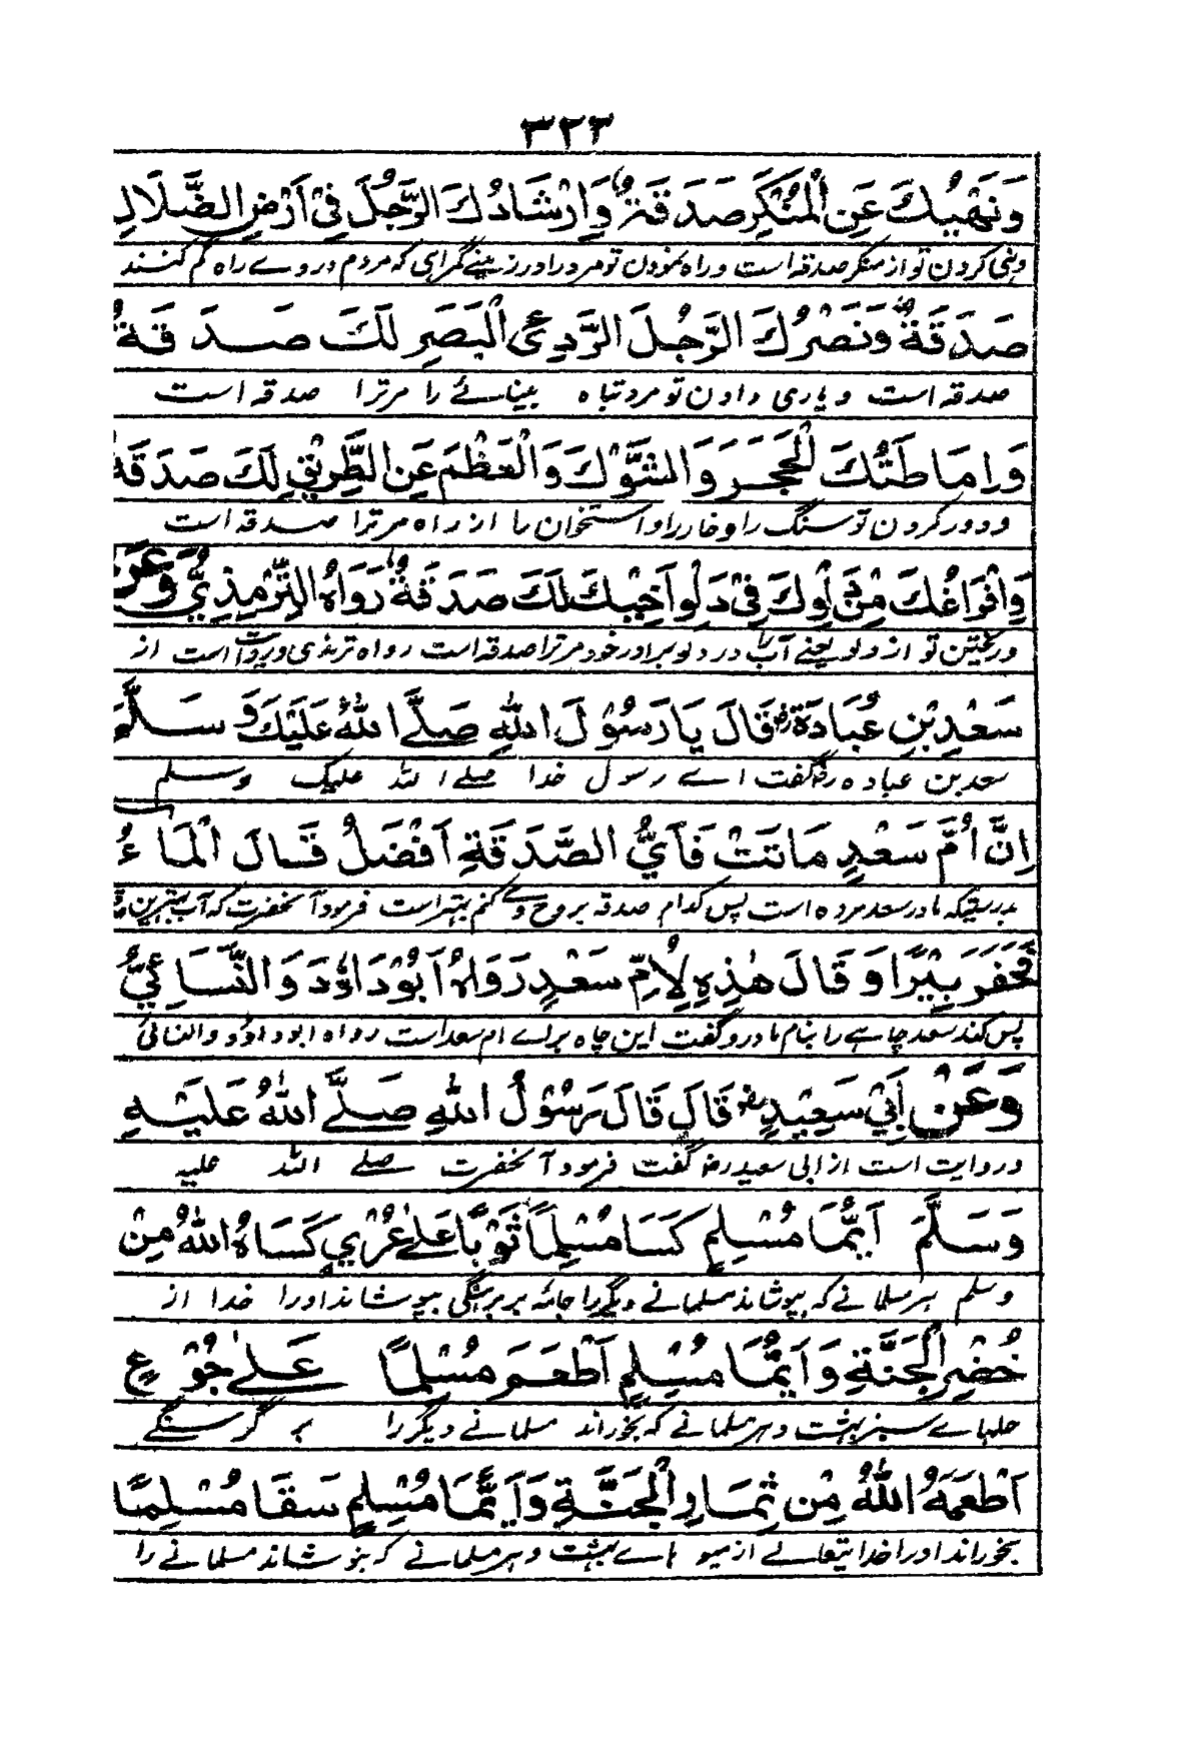 ۳۲۳
وَنَهْيُكَ عَنِ الْمُنْكَرِ صَدَقَةٌ وَاِرْشَادُكَ الرَّجُلَ فِيْ اَرْضِ الضَّلَالِ
ونہی کردن تو از منکر صدقہ است و راہ نمودن تو مرد را در زمینے گمراہی کہ مردم در وے راہ گم کنند
صَدَقَةٌ وَنَصْرُكَ الرَّجُلَ الرَّدِيَّ الْبَصَرِ لَكَ صَدَقَةٌ
صدقہ است و یاری دادن تو مرد تباہ بینائے را مر ترا صدقہ است
وَاِمَاطَتُكَ الْحَجَرَ وَالشَّوْكَ وَالْعَظْمَ عَنِ الطَّرِيْقِ لَكَ صَدَقَةٌ
و دور کردن تو سنگ را و خار را و استخوان را از راہ مر ترا صدقہ است
وَاِفْرَاغُكَ مِنْ دَلْوِكَ فِيْ دَلْوِ اَخِيْكَ لَكَ صَدَقَةٌ رَوَاهُ التِّرْمِذِيُّ وَعَنْ
و ریختن تو از دلو یعنے آب را در دلو برادر خود مر ترا صدقہ است رواہ ترمذی و روایت است از
سَعْدِ بْنِ عُبَادَةَ رض قَالَ يَا رَسُوْلَ اللهِ صَلَّے اللهُ عَلَيْكَ وَسَلَّمَ
سعد بن عبادہ رض گفت اے رسول خدا صلے اللہ علیک وسلم
اِنَّ اُمَّ سَعْدٍ مَاتَتْ فَاَيُّ الصَّدَقَةِ اَفْضَلُ قَالَ الْمَاءُ
بدرستیکہ مادر سعد مردہ است پس کدام صدقہ بروح وے کنم بہتر است فرمود آنحضرت کہ آب بہترین
فَحَفَرَ بِيْرًا وَقَالَ هٰذِهِ لِاُمِّ سَعْدٍ رَوَاهُ اَبُوْدَاوٗدَ وَالنَّسَاءِيُّ
پس کند سعد چاہے را بنام مادر و گفت این چاہ برلے ام سعد است رواہ ابوداؤد والنسائی
وَعَنْ اَبِيْ سَعِيْدٍ رض قَالَ قَالَ رَسُوْلُ اللهِ صَلَّے اللهُ عَلَيْهِ
و روایت است از ابی سعید رض گفت فرمود آنحضرت صلے اللہ علیہ
وَسَلَّمَ اَيُّمَا مُسْلِمٍ كَسَا مُسْلِمًا ثَوْبًا عَلٰے عُرْيٍ كَسَاهُ اللهُ مِنْ
وسلم ہر مسلمانے کہ بپوشاند مسلمانے دیگر را جامہ بر برہنگی بپوشاند اورا خدا از
خُضْرِ الْجَنَّةِ وَاَيُّمَا مُسْلِمٍ اَطْعَمَ مُسْلِمًا عَلٰے جُوْعٍ
حلہاے سبز بہشت و ہر مسلمانے کہ بخوراند مسلمانے دیگر را بر گرسنگے
اَطْعَمَهُ اللهُ مِنْ ثِمَارِ الْجَنَّةِ وَاَيُّمَا مُسْلِمٍ سَقَا مُسْلِمًا
بخوراند اورا خدایتعالے از میو ہاے بہشت و ہر مسلمانے کہ بنوشاند مسلمانے را